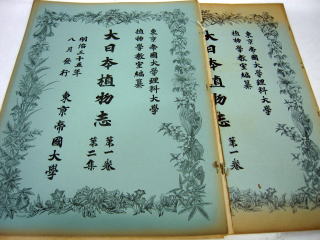 東京帝國大學理科大學
植物學教室編纂
大日本植物志
第一卷
第二集
明治三十五年
八月發行
東京帝國大學
東京帝國大學理科大學
植物學教室編纂
大日本植物志
第一卷